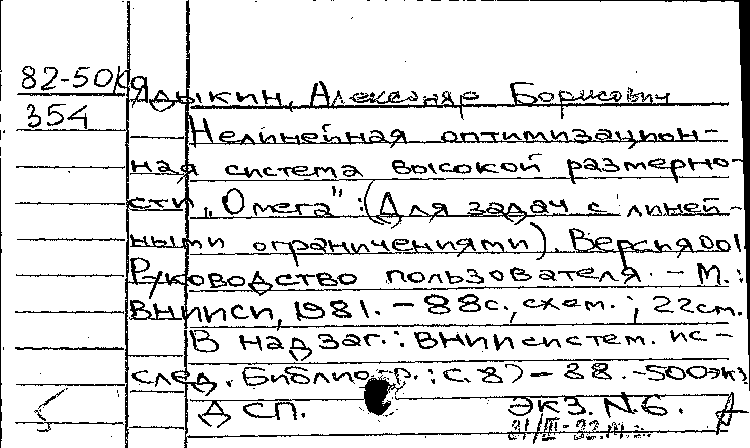 82-50/кя
354
Ядыкин, Александр Борисович
Нелинейная оптимизацион-
ная система высокой размерно-
сти „Омега": (Для задач с линей-
ными ограничениями). Версия 001.
Руководство пользователя. – М.:
ВНИИСИ, 1981. – 88с., схем.; 22см.
В надзаг.: ВНИИ систем. ис-
след. Библиогр.: с. 87-88. -500экз
ДСП. ЭКЗ. N.6.